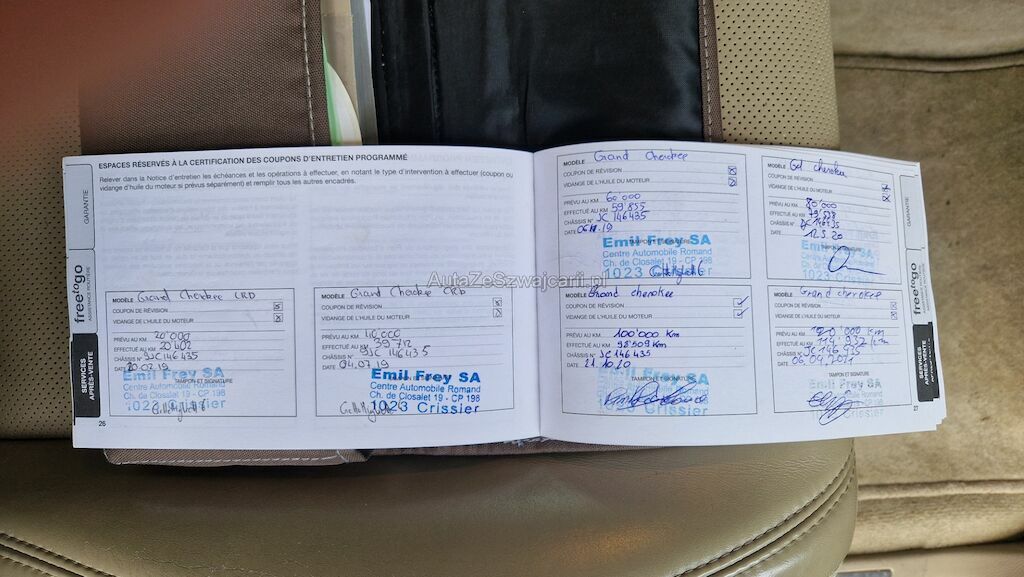 ESPACES RÉSERVÉS À LA CERTIFICATION DES COUPONS D'ENTRETIEN PROGRAMMÉ
Relever dans la Notice d'entretien les échéances et les opérations à effectuer, en notant le type d'intervention à effectuer (coupon ou
vidange d'huile du moteur si prévus séparément) et remplir tous les autres encadrés.
GARANTIE
freetogo
ASSISTANCE ROUTIÈRE
SERVICES
APRÈS-VENTE
MODÈLE Grand Cherokee CRD
COUPON DE RÉVISION
VIDANGE DE L'HUILE DU MOTEUR
PRÉVU AU KM 20'000
EFFECTUÉ AU KM 20 402
CHÂSSIS N° 9JC 146 435
DATE 20.02.19
TAMPON ET SIGNATURE
Emil Frey SA
Centre Automobile Romand
Ch. de Closalet 19 - CP 198
1023 Crissier
MODÈLE Grand Cherokee CRD
COUPON DE RÉVISION
VIDANGE DE L'HUILE DU MOTEUR
PRÉVU AU KM 40.000
EFFECTUÉ AU KM 39 712
CHÂSSIS N° 9JC 146435
DATE 04.07.19
Emil Frey SA
Centre Automobile Romand
Ch. de Closalet 19 - CP 198
1023 Crissier
26
MODÈLE Grand Cherokee
COUPON DE RÉVISION
VIDANGE DE L'HUILE DU MOTEUR
PRÉVU AU KM 60.000
EFFECTUÉ AU KM 59'855
CHÂSSIS N° JC 146435
DATE
TAMPON ET SIGNATURE
Emil Frey SA
Centre Automobile Romand
Ch. de Closalet 19 - CP 198
1023
MODÈLE Gd cherokee
COUPON DE RÉVISION
VIDANGE DE L'HUILE DU MOTEUR
PRÉVU AU KM 80'000
EFFECTUÉ AU KM
CHÂSSIS N° JC 146435
DATE 12.5.20
TAMPON ET SIGNATURE
AutaZeSzwajcarii.pl
MODÈLE Grand cherokee
COUPON DE RÉVISION
VIDANGE DE L'HUILE DU MOTEUR
PRÉVU AU KM 100'000 Km
EFFECTUÉ AU KM 98'509 Km
CHÂSSIS N° JC 146435
DATE 21.10.20
TAMPON ET SIGNATURE
MODÈLE Grand cherokee
COUPON DE RÉVISION
VIDANGE DE L'HUILE DU MOTEUR
PRÉVU AU KM 120'000 Km
EFFECTUÉ AU KM 114'932 Km
CHÂSSIS N° JC 146 435
DATE
TAMPON ET SIGNATURE
Emil Frey SA
Centre Automobile Romand
Crissier
27
GARANTIE
freetogo
SERVICES
APRÈS-VENTE